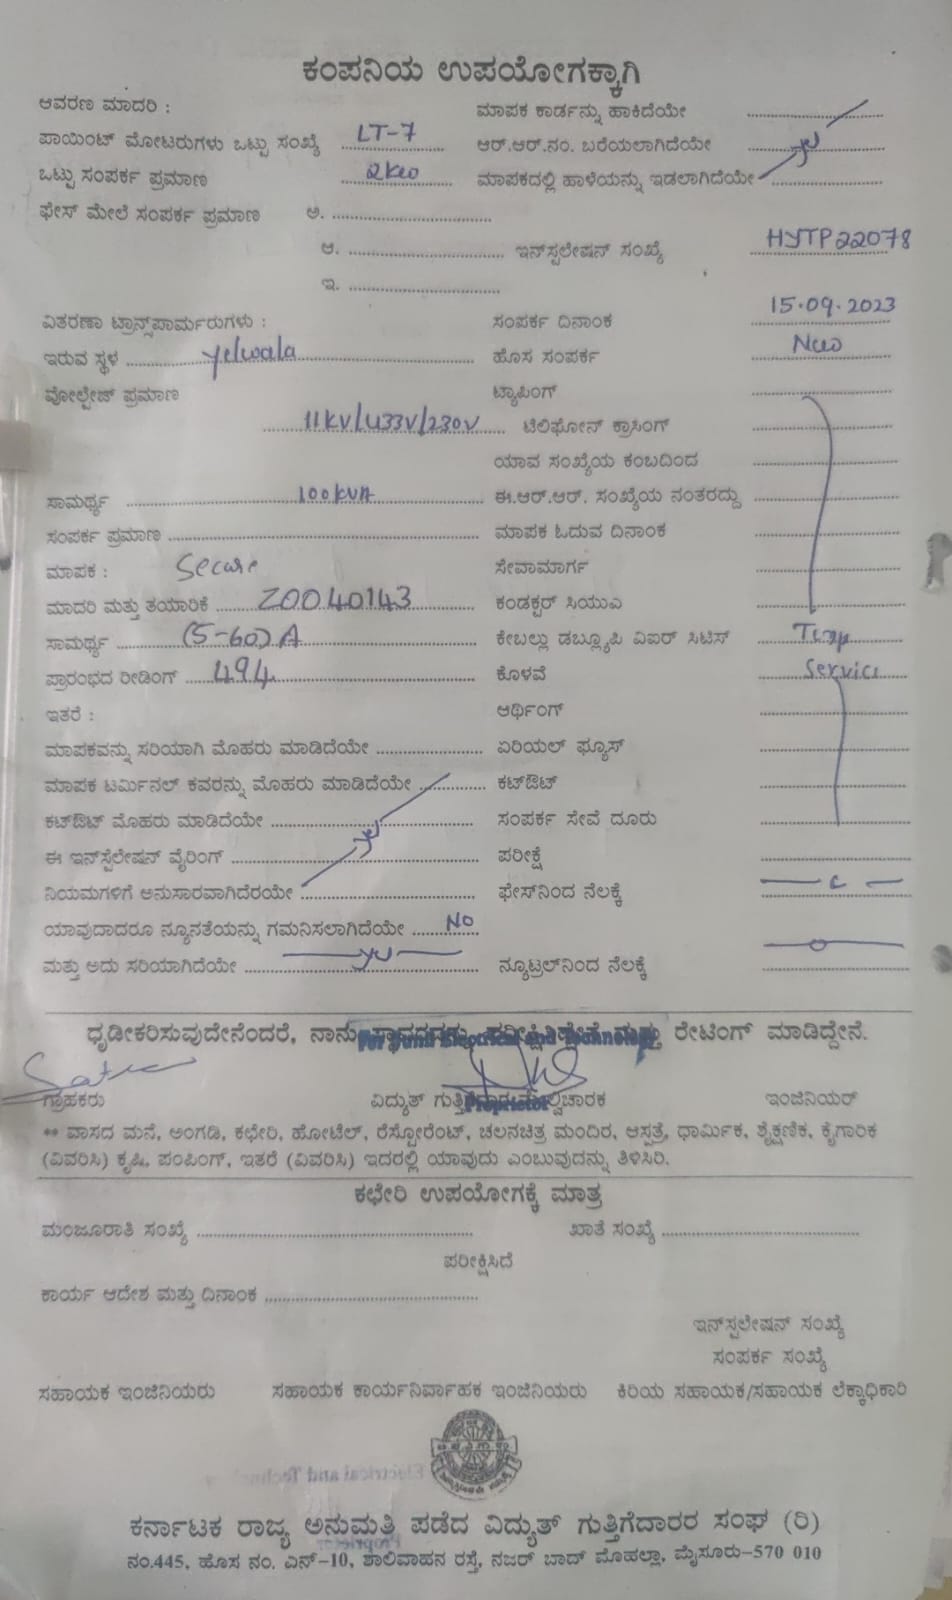 ಕಂಪನಿಯ ಉಪಯೋಗಕ್ಕಾಗಿ
ಆವರಣ ಮಾದರಿ : ಮಾಪಕ ಕಾರ್ಡನ್ನು ಹಾಕಿದೆಯೇ
ಪಾಯಿಂಟ್ ಮೋಟರುಗಳು ಒಟ್ಟು ಸಂಖ್ಯೆ LT-7 ಆರ್.ಆರ್.ನಂ. ಬರೆಯಲಾಗಿದೆಯೇ
ಒಟ್ಟು ಸಂಪರ್ಕ ಪ್ರಮಾಣ 2KW ಮಾಪಕದಲ್ಲಿ ಹಾಳೆಯನ್ನು ಇಡಲಾಗಿದೆಯೇ
ಫೇಸ್ ಮೇಲೆ ಸಂಪರ್ಕ ಪ್ರಮಾಣ ಅ.
ಆ. ಇನ್‌ಸ್ಪಲೇಷನ್ ಸಂಖ್ಯೆ HYTP22078
ಇ.
ವಿತರಣಾ ಟ್ರಾನ್ಸ್‌ಪಾರ್ಮರುಗಳು : ಸಂಪರ್ಕ ದಿನಾಂಕ 15.09.2023
ಇರುವ ಸ್ಥಳ Yelwala ಹೊಸ ಸಂಪರ್ಕ New
ವೋಲ್ಟೇಜ್ ಪ್ರಮಾಣ ಟ್ಯಾಪಿಂಗ್
11KV/433V/230V ಟೆಲಿಫೋನ್ ಕ್ರಾಸಿಂಗ್
ಯಾವ ಸಂಖ್ಯೆಯ ಕಂಬದಿಂದ
ಸಾಮರ್ಥ್ಯ 100KVA ಈ.ಆರ್.ಆರ್. ಸಂಖ್ಯೆಯ ನಂತರದ್ದು
ಸಂಪರ್ಕ ಪ್ರಮಾಣ ಮಾಪಕ ಓದುವ ದಿನಾಂಕ
ಮಾಪಕ : Secure ಸೇವಾಮಾರ್ಗ
ಮಾದರಿ ಮತ್ತು ತಯಾರಿಕೆ Z0040143 ಕಂಡಕ್ಟರ್ ಸಿಯುಎ
ಸಾಮರ್ಥ್ಯ (5-60)A ಕೇಬಲ್ಲು ಡಬ್ಲ್ಯೂಪಿ ಎಐರ್ ಸಿಟಿಸ್ Temp
ಪ್ರಾರಂಭದ ರೀಡಿಂಗ್ 494 ಕೊಳವೆ Service
ಇತರೆ : ಆರ್ಥಿಂಗ್
ಮಾಪಕವನ್ನು ಸರಿಯಾಗಿ ಮೊಹರು ಮಾಡಿದೆಯೇ ಏರಿಯಲ್ ಫ್ಯೂಸ್
ಮಾಪಕ ಟರ್ಮಿನಲ್ ಕವರನ್ನು ಮೊಹರು ಮಾಡಿದೆಯೇ ಕಟ್‌ಔಟ್
ಕಟ್‌ಔಟ್ ಮೊಹರು ಮಾಡಿದೆಯೇ ಸಂಪರ್ಕ ಸೇವೆ ದೂರು
ಈ ಇನ್‌ಸ್ಪೆಲೇಷನ್ ವೈರಿಂಗ್ ಪರೀಕ್ಷೆ
ನಿಯಮಗಳಿಗೆ ಅನುಸಾರವಾಗಿದೆರಯೇ ಫೇಸ್‌ನಿಂದ ನೆಲಕ್ಕೆ
ಯಾವುದಾದರೂ ನ್ಯೂನತೆಯನ್ನು ಗಮನಿಸಲಾಗಿದೆಯೇ NO
ಮತ್ತು ಅದು ಸರಿಯಾಗಿದೆಯೇ ನ್ಯೂಟ್ರಲ್‌ನಿಂದ ನೆಲಕ್ಕೆ
ಧೃಡೀಕರಿಸುವುದೇನೆಂದರೆ, ನಾನು ರೇಟಿಂಗ್ ಮಾಡಿದ್ದೇನೆ.
Electrical and Technology
ಗ್ರಾಹಕರು ವಿದ್ಯುತ್ ಇಂಜಿನಿಯರ್
Proprietor
** ವಾಸದ ಮನೆ, ಅಂಗಡಿ, ಕಛೇರಿ, ಹೋಟೆಲ್, ರೆಸ್ಟೋರೆಂಟ್, ಚಲನಚಿತ್ರ ಮಂದಿರ, ಆಸ್ಪತ್ರೆ, ಧಾರ್ಮಿಕ, ಶೈಕ್ಷಣಿಕ, ಕೈಗಾರಿಕ
(ವಿವರಿಸಿ) ಕೃಷಿ, ಪಂಪಿಂಗ್, ಇತರೆ (ವಿವರಿಸಿ) ಇದರಲ್ಲಿ ಯಾವುದು ಎಂಬುವುದನ್ನು ತಿಳಿಸಿರಿ.
ಕಛೇರಿ ಉಪಯೋಗಕ್ಕೆ ಮಾತ್ರ
ಮಂಜೂರಾತಿ ಸಂಖ್ಯೆ ಖಾತೆ ಸಂಖ್ಯೆ
ಪರೀಕ್ಷಿಸಿದೆ
ಕಾರ್ಯ ಆದೇಶ ಮತ್ತು ದಿನಾಂಕ
ಇನ್‌ಸ್ಪಲೇಷನ್ ಸಂಖ್ಯೆ
ಸಂಪರ್ಕ ಸಂಖ್ಯೆ
ಸಹಾಯಕ ಇಂಜಿನಿಯರು ಸಹಾಯಕ ಕಾರ್ಯನಿರ್ವಾಹಕ ಇಂಜಿನಿಯರು ಕಿರಿಯ ಸಹಾಯಕ/ಸಹಾಯಕ ಲೆಕ್ಕಾಧಿಕಾರಿ
ಕರ್ನಾಟಕ ರಾಜ್ಯ ಅನುಮತಿ ಪಡೆದ ವಿದ್ಯುತ್ ಗುತ್ತಿಗೆದಾರರ ಸಂಘ (ರಿ)
ನಂ.445, ಹೊಸ ನಂ. ಎನ್-10, ಶಾಲಿವಾಹನ ರಸ್ತೆ, ನಜರ್ ಬಾದ್ ಮೊಹಲ್ಲಾ, ಮೈಸೂರು-570 010